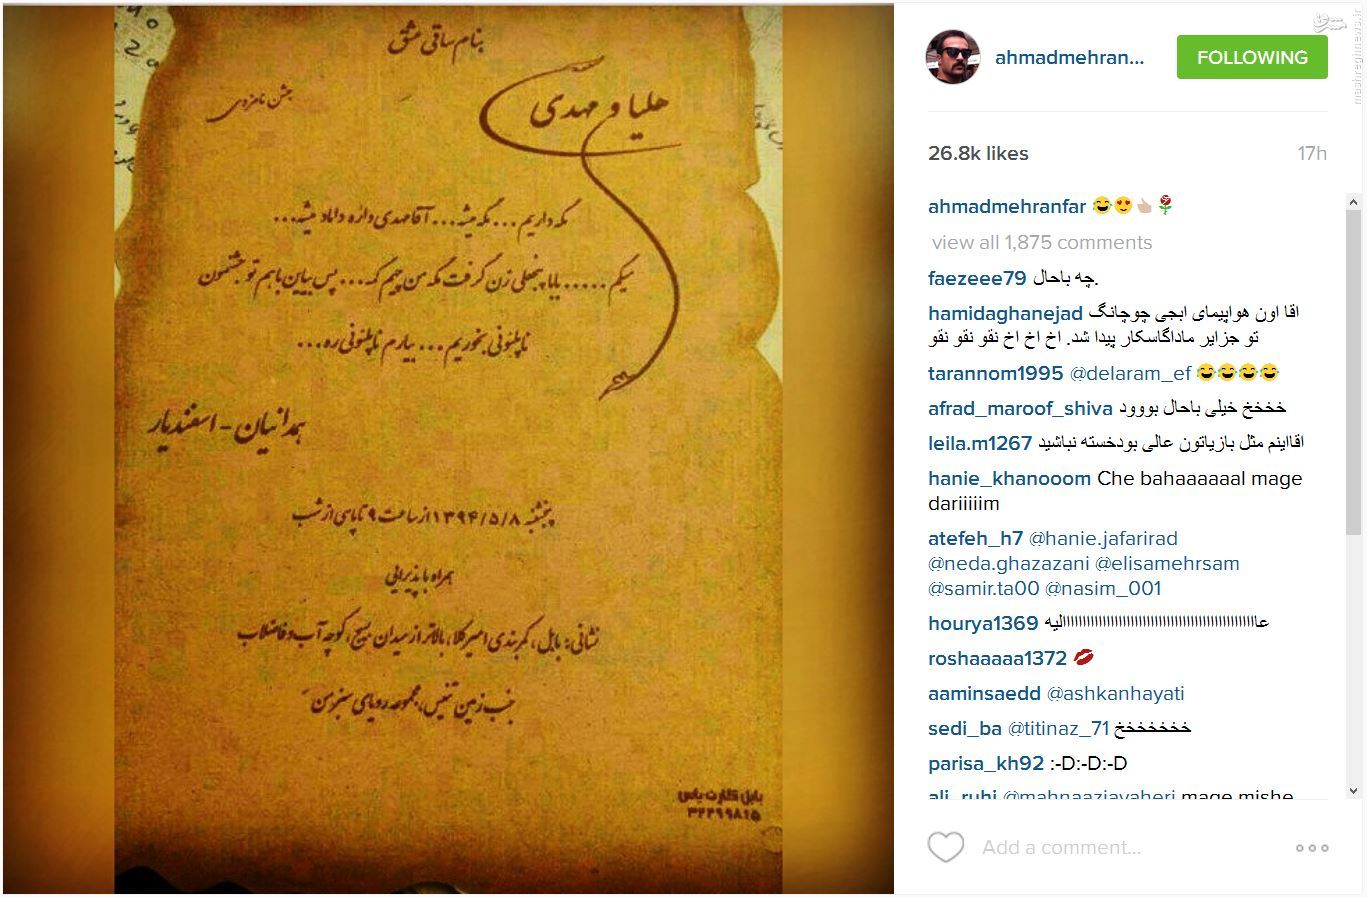 بنام ساقی عشق
جشن نامزدی
هلیا و مهدی
مگه داریم... مگه میشه... آقا مهدی داره داماد میشه...
میگم..... بابا پنجعلی زن گرفت مگه من چیم که... پس بیاین با هم تو جشنمون
ناپلئونی بخوریم... بیارم ناپلئونی ره...
همدانیان - اسفندیار
پنجشنبه ۱۳۹۴/۵/۸ از ساعت ۹ تا پاسی از شب
همراه با پذیرایی
نشانی: بابل، کمربندی امیرکلا، بالاتر از میدان بسیج، کوچه آب و فاضلاب
جنب زمین تنیس، مجموعه رویای سبز من
بابل کارت یاس
۳۲۲۹۹۸۱۵
ahmadmehran...
FOLLOWING
26.8k likes
17h
ahmadmehranfar 😂😍👍🌹
view all 1,875 comments
faezeee79 چه باحال.
hamidaghanejad اقا اون هواپیمای ابجی چوچانگ
تو جزایر ماداگاسکار پیدا شد. اخ اخ اخ نقو نقو نقو
tarannom1995 @delaram_ef 😂😂😂😂
afrad_maroof_shiva خخخخ خیلی باحال بووود
leila.m1267 اقااینم مثل بازیاتون عالی بودخسته نباشید
hanie_khanooom Che bahaaaaaal mage
dariiiiim
atefeh_h7 @hanie.jafarirad
@neda.ghazazani @elisamehrsam
@samir.ta00 @nasim_001
hourya1369 عااااااااااااااااااااااااااااااااااااااااااالیه
roshaaaaa1372 💋
aaminsaedd @ashkanhayati
sedi_ba @titinaz_71 خخخخخخخ
parisa_kh92 :-D:-D:-D
ali_ruhi @mahnaazjavaheri mage mishe
Add a comment...
مشرق
mashreghnews.ir